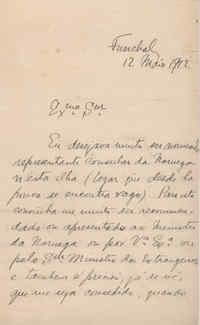 Funchal
12 Maio 1912
Exmo Snr
Eu desejava muito ser nomeado
representante Consular da Noruega
n'esta ilha (logar que desde ha
pouco se encontra vago). Para isto
convinha-me muito ser recommen-
dado ou apresentado ao Ministro
da Noruega ou por V. Exa. ou
pelo Exmo Ministro dos Estrangeiros
e tambem é preciso, já se vê,
que me seja concedido, quando